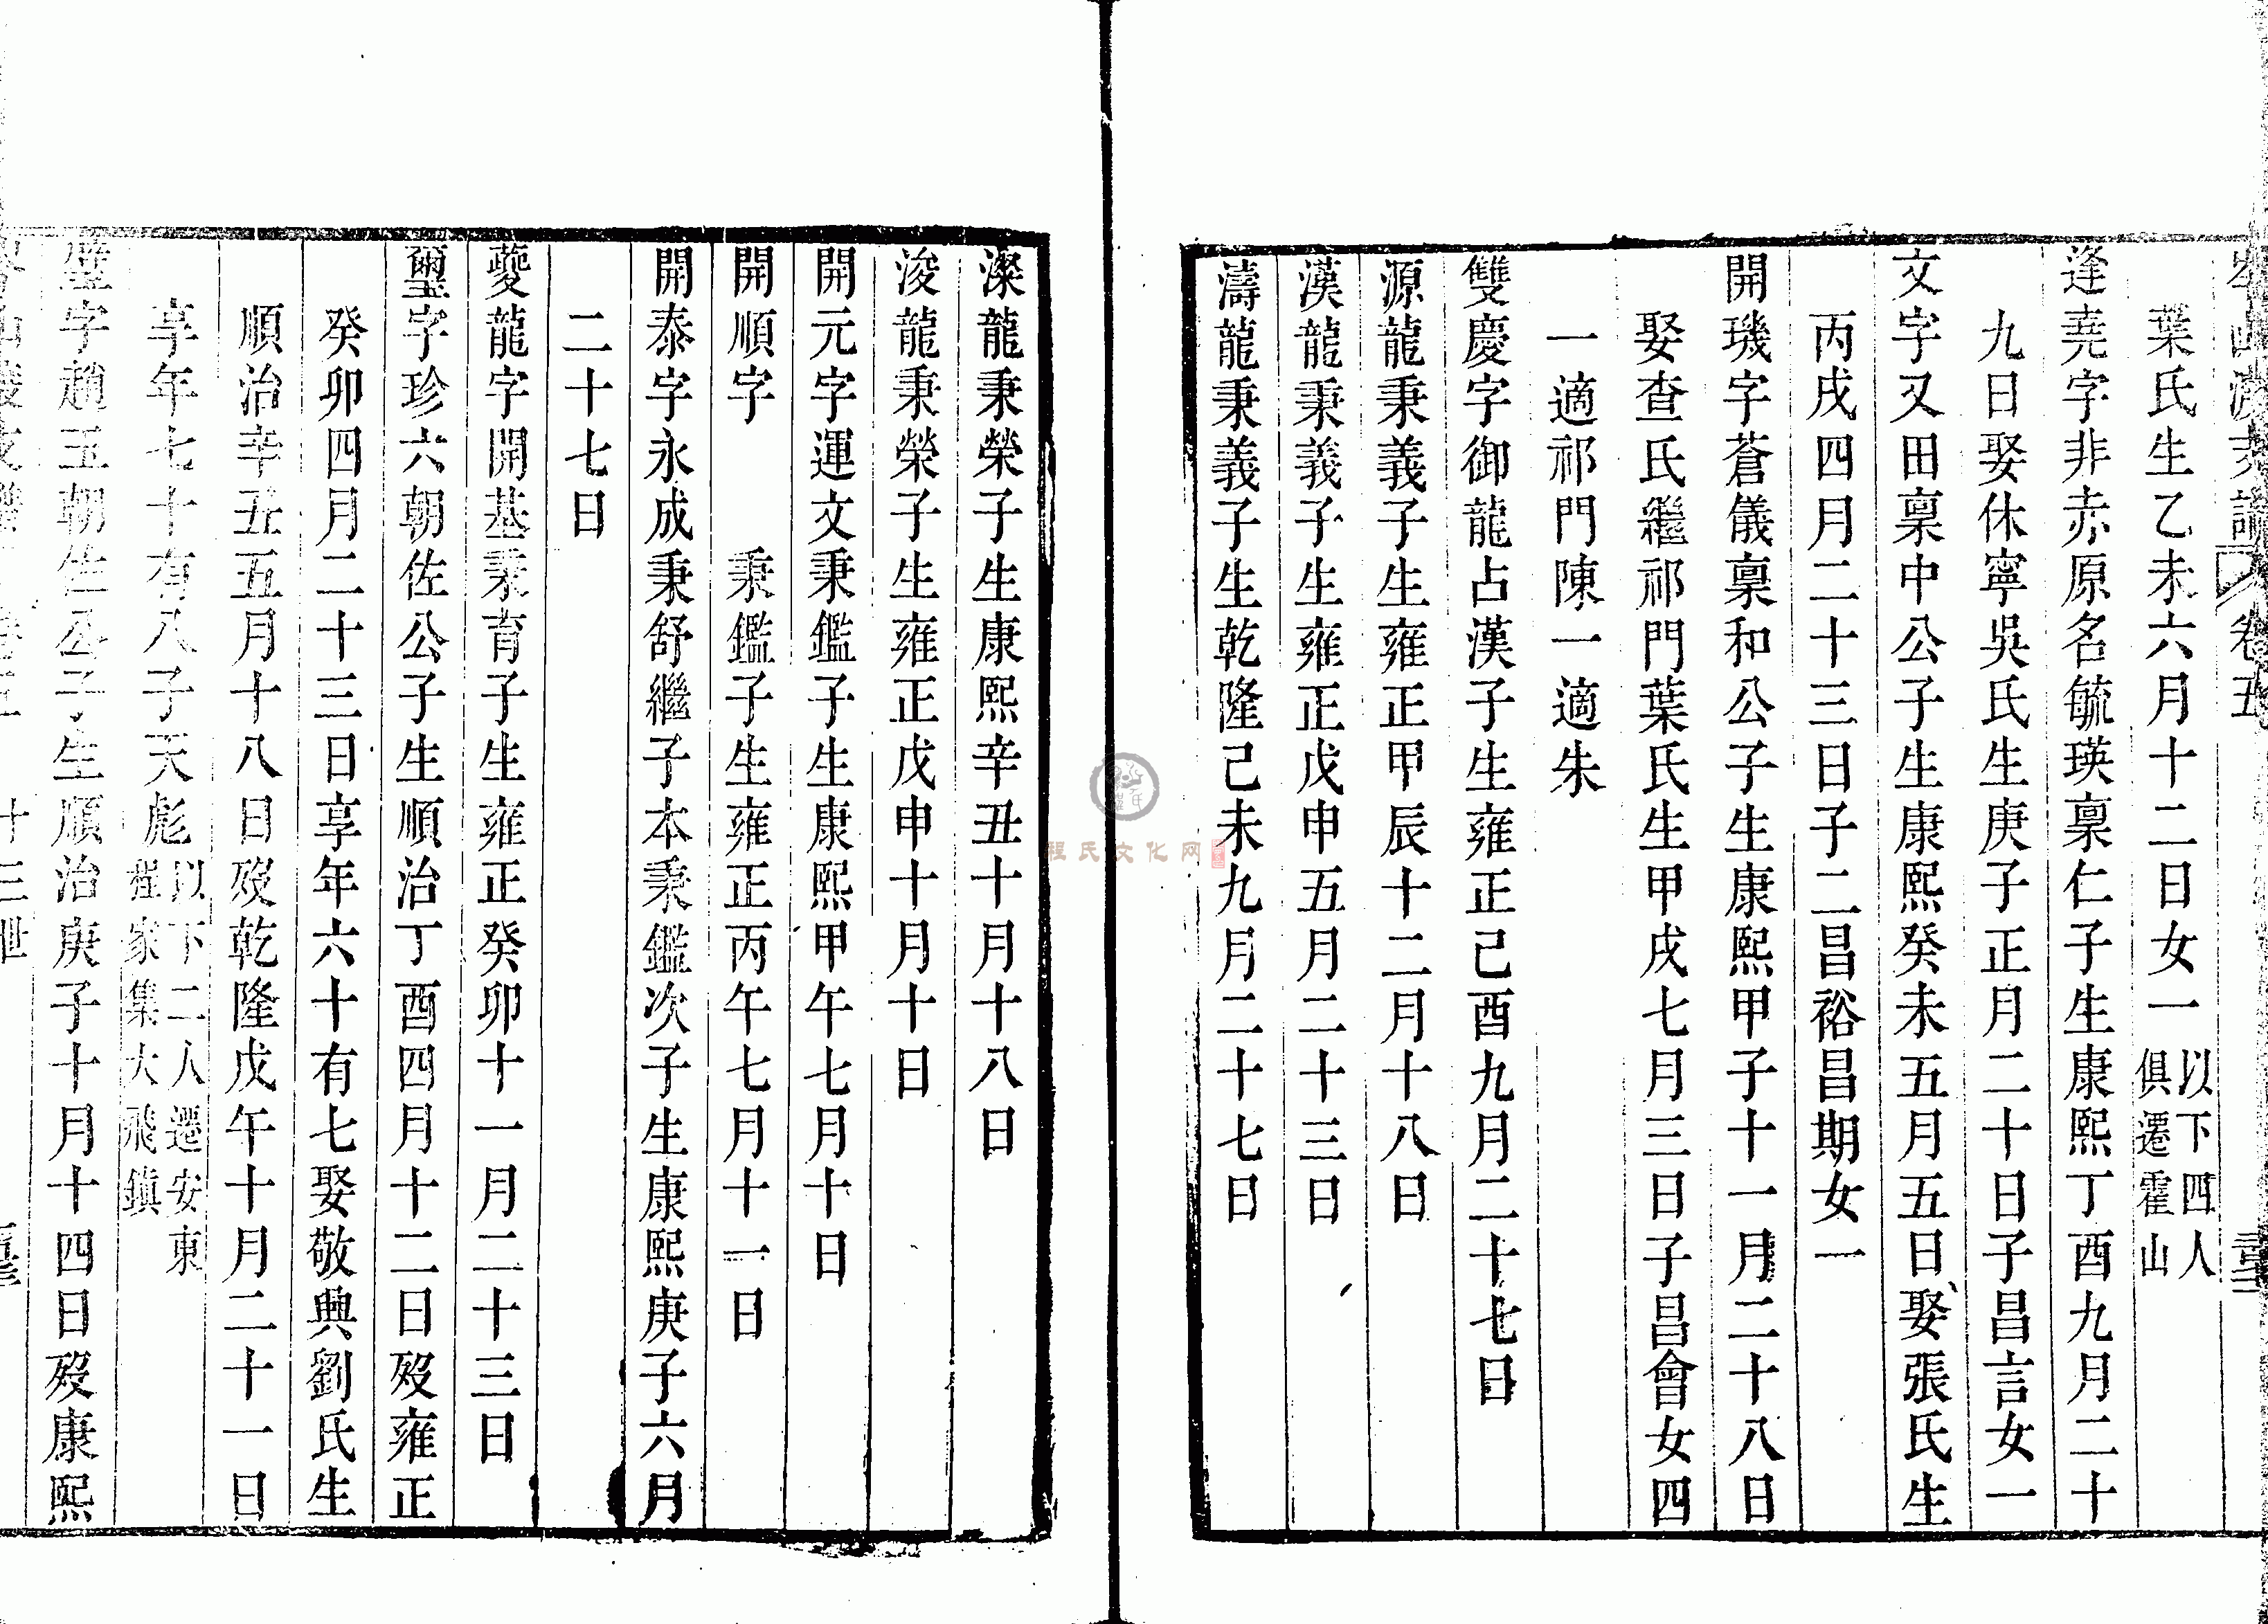 卷五
葉氏生乙未六月十二日女一以下四人俱遷霍山
逢堯字非赤原名毓瑛稟仁子生康熙丁酉九月二十
九日娶休寧吳氏生庚子正月二十日子昌言女一
文字又田稟中公子生康熙癸未五月五日娶張氏生
丙戌四月二十三日子二昌裕昌期女一
開璣字蒼儀稟和公子生康熙甲子十一月二十八日
娶查氏繼祁門葉氏生甲戌七月三日子昌會女四
一適祁門陳一適朱
雙慶字御龍占漢子生雍正己酉九月二十七日
源龍秉義子生雍正甲辰十二月十八日
漢龍秉義子生雍正戊申五月二十三日
濤龍秉義子生乾隆己未九月二十七日
濼龍秉榮子生康熙辛丑十月十八日
浚龍秉榮子生雍正戊申十月十日
開元字運文秉鑑子生康熙甲午七月十日
開順字 秉鑑子生雍正丙午七月十一日
開泰字永成秉舒繼子本秉鑑次子生康熙庚子六月
二十七日
夔龍字開基秉育子生雍正癸卯十一月二十三日
璽字珍六朝佐公子生順治丁酉四月十二日歿雍正
癸卯四月二十三日享年六十有七娶敬興劉氏生
順治辛丑五月十八日歿乾隆戊午十月二十一日
享年七十有八子天彪以下二人遷安東程家集大飛鎮
璧字趙玉朝佐公子生順治庚子十月十四日歿康熙
十三世
程氏文化网